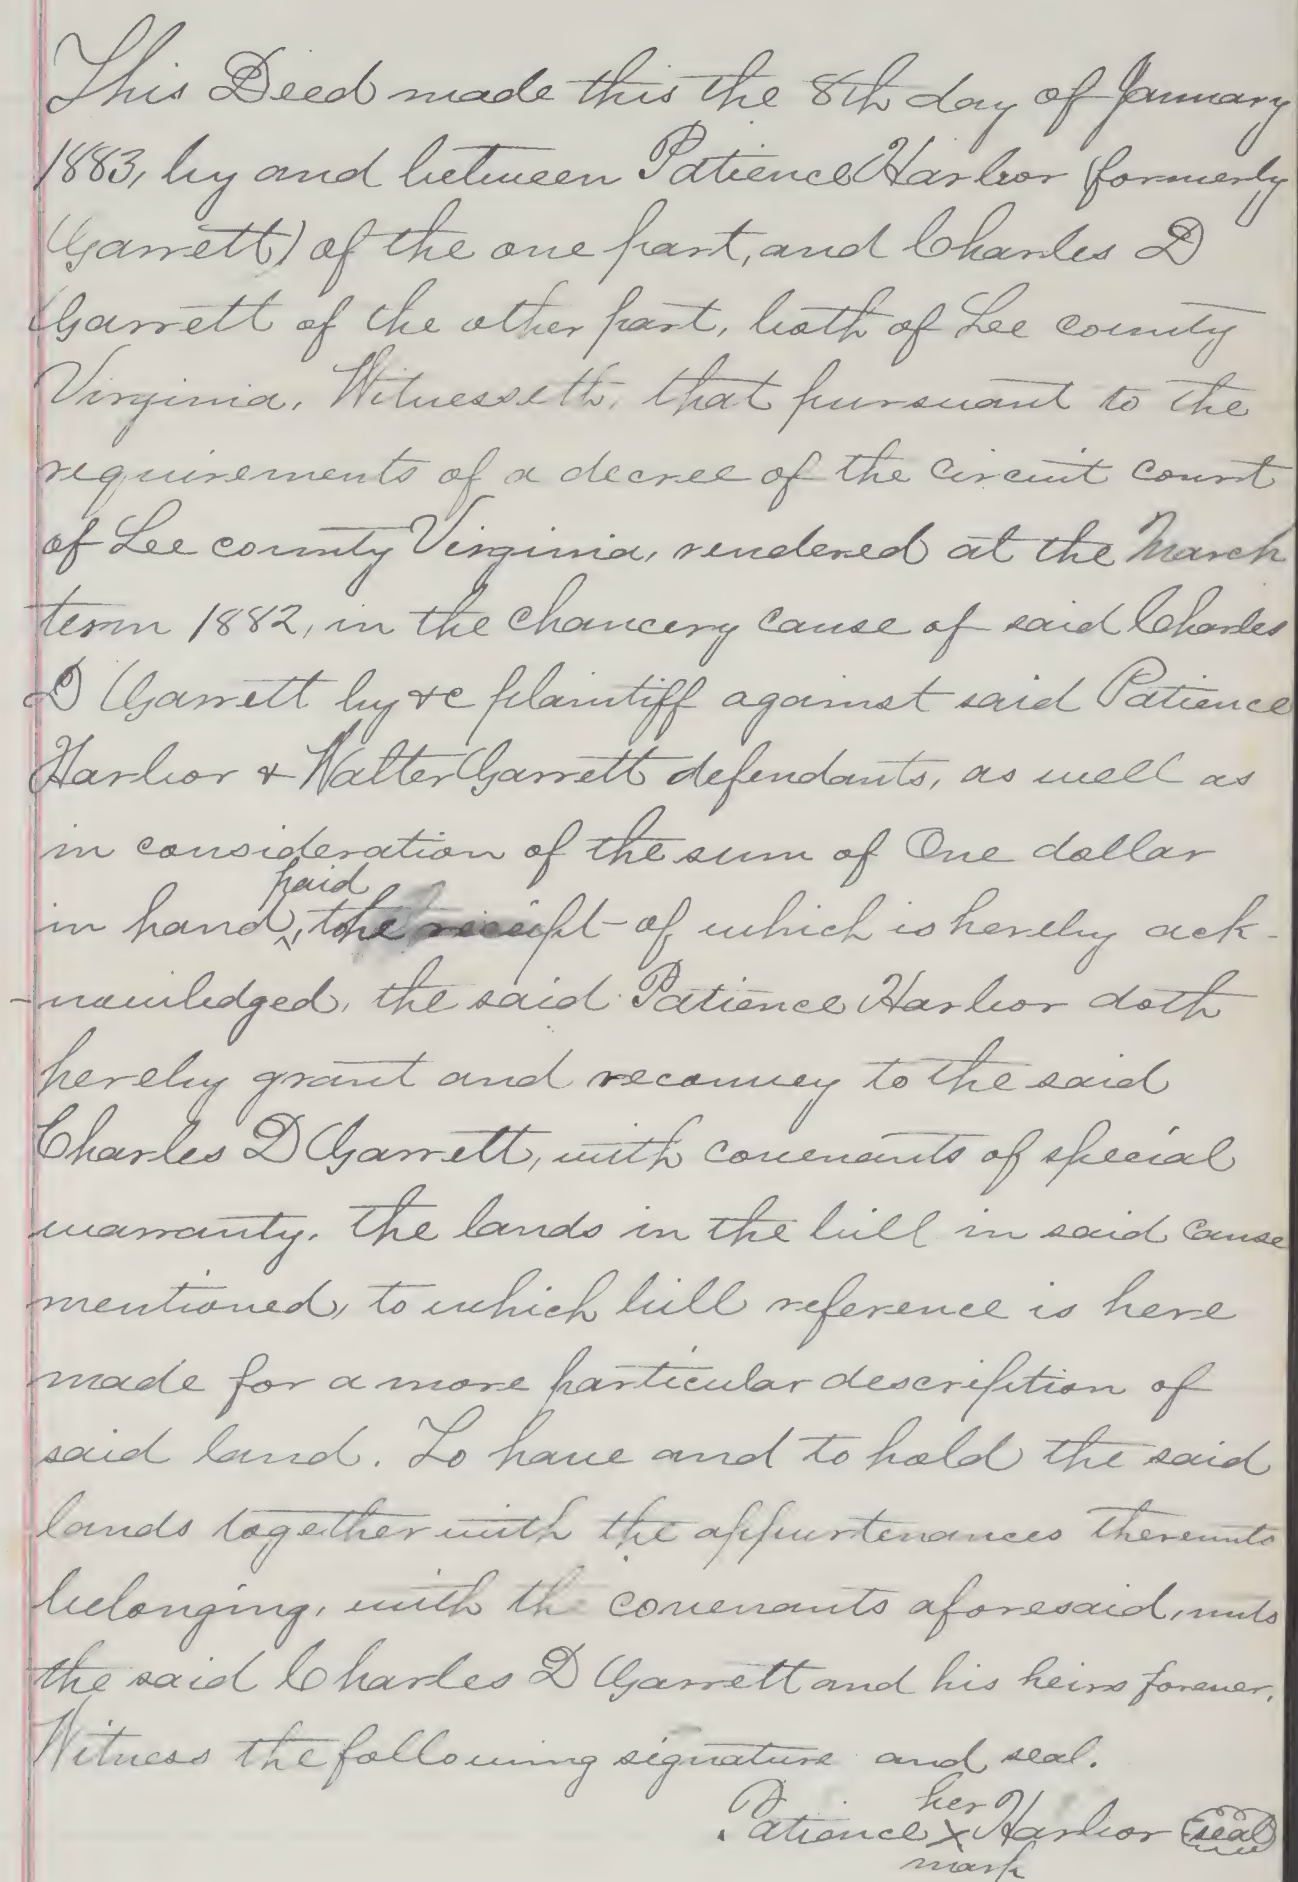 This Deed made this the 8th day of January
1883, by and between Patience Harbor (formerly
Garrett) of the one part, and Charles D
Garrett of the other part, both of Lee county
Virginia, Witnesseth, that pursuant to the
requirements of a decree of the circuit court
of Lee county Virginia, rendered at the March
term 1882, in the chancery cause of said Charles
D Garrett by &c plaintiff against said Patience
Harbor & Walter Garrett defendants, as well as
in consideration of the sum of One dollar
paid
in hand, the receipt of which is hereby ack-
-nowledged, the said Patience Harbor doth
hereby grant and reconvey to the said
Charles D Garrett, with covenants of special
warranty, the lands in the bill in said cause
mentioned, to which bill reference is here
made for a more particular description of
said land. To have and to hold the said
lands together with the appurtenances thereunto
belonging, with the covenants aforesaid, unto
the said Charles D Garrett and his heirs forever.
Witness the following signature and seal.
her
Patience X Harbor (seal)
mark